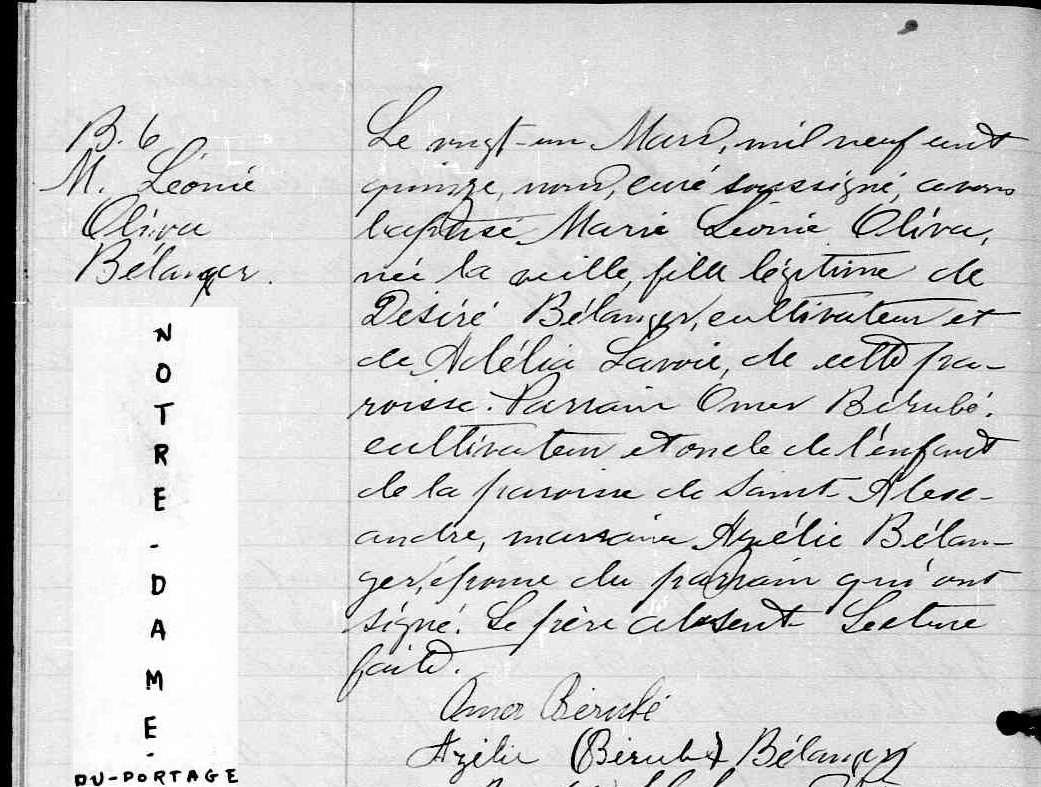 B. 6
M. Léonie
Oliva
Bélanger.
NOTRE-DAME-
DU-PORTAGE
Le vingt-un Mars, mil neuf cent
quinze, nous, curé soussigné, avons
baptisé Marie Léonie Oliva,
née la veille, fille légitime de
Désiré Bélanger, cultivateur et
de Adélia Lavoie, de cette pa-
roisse. Parrain Omer Bérubé,
cultivateur et oncle de l'enfant
de la paroisse de Saint-Alex-
andre, marraine Azélie Bélan-
ger, épouse du parrain qui ont
signé. Le père absent. Lecture
faite.
Omer Bérubé
Azélie (Bérubé) Bélanger